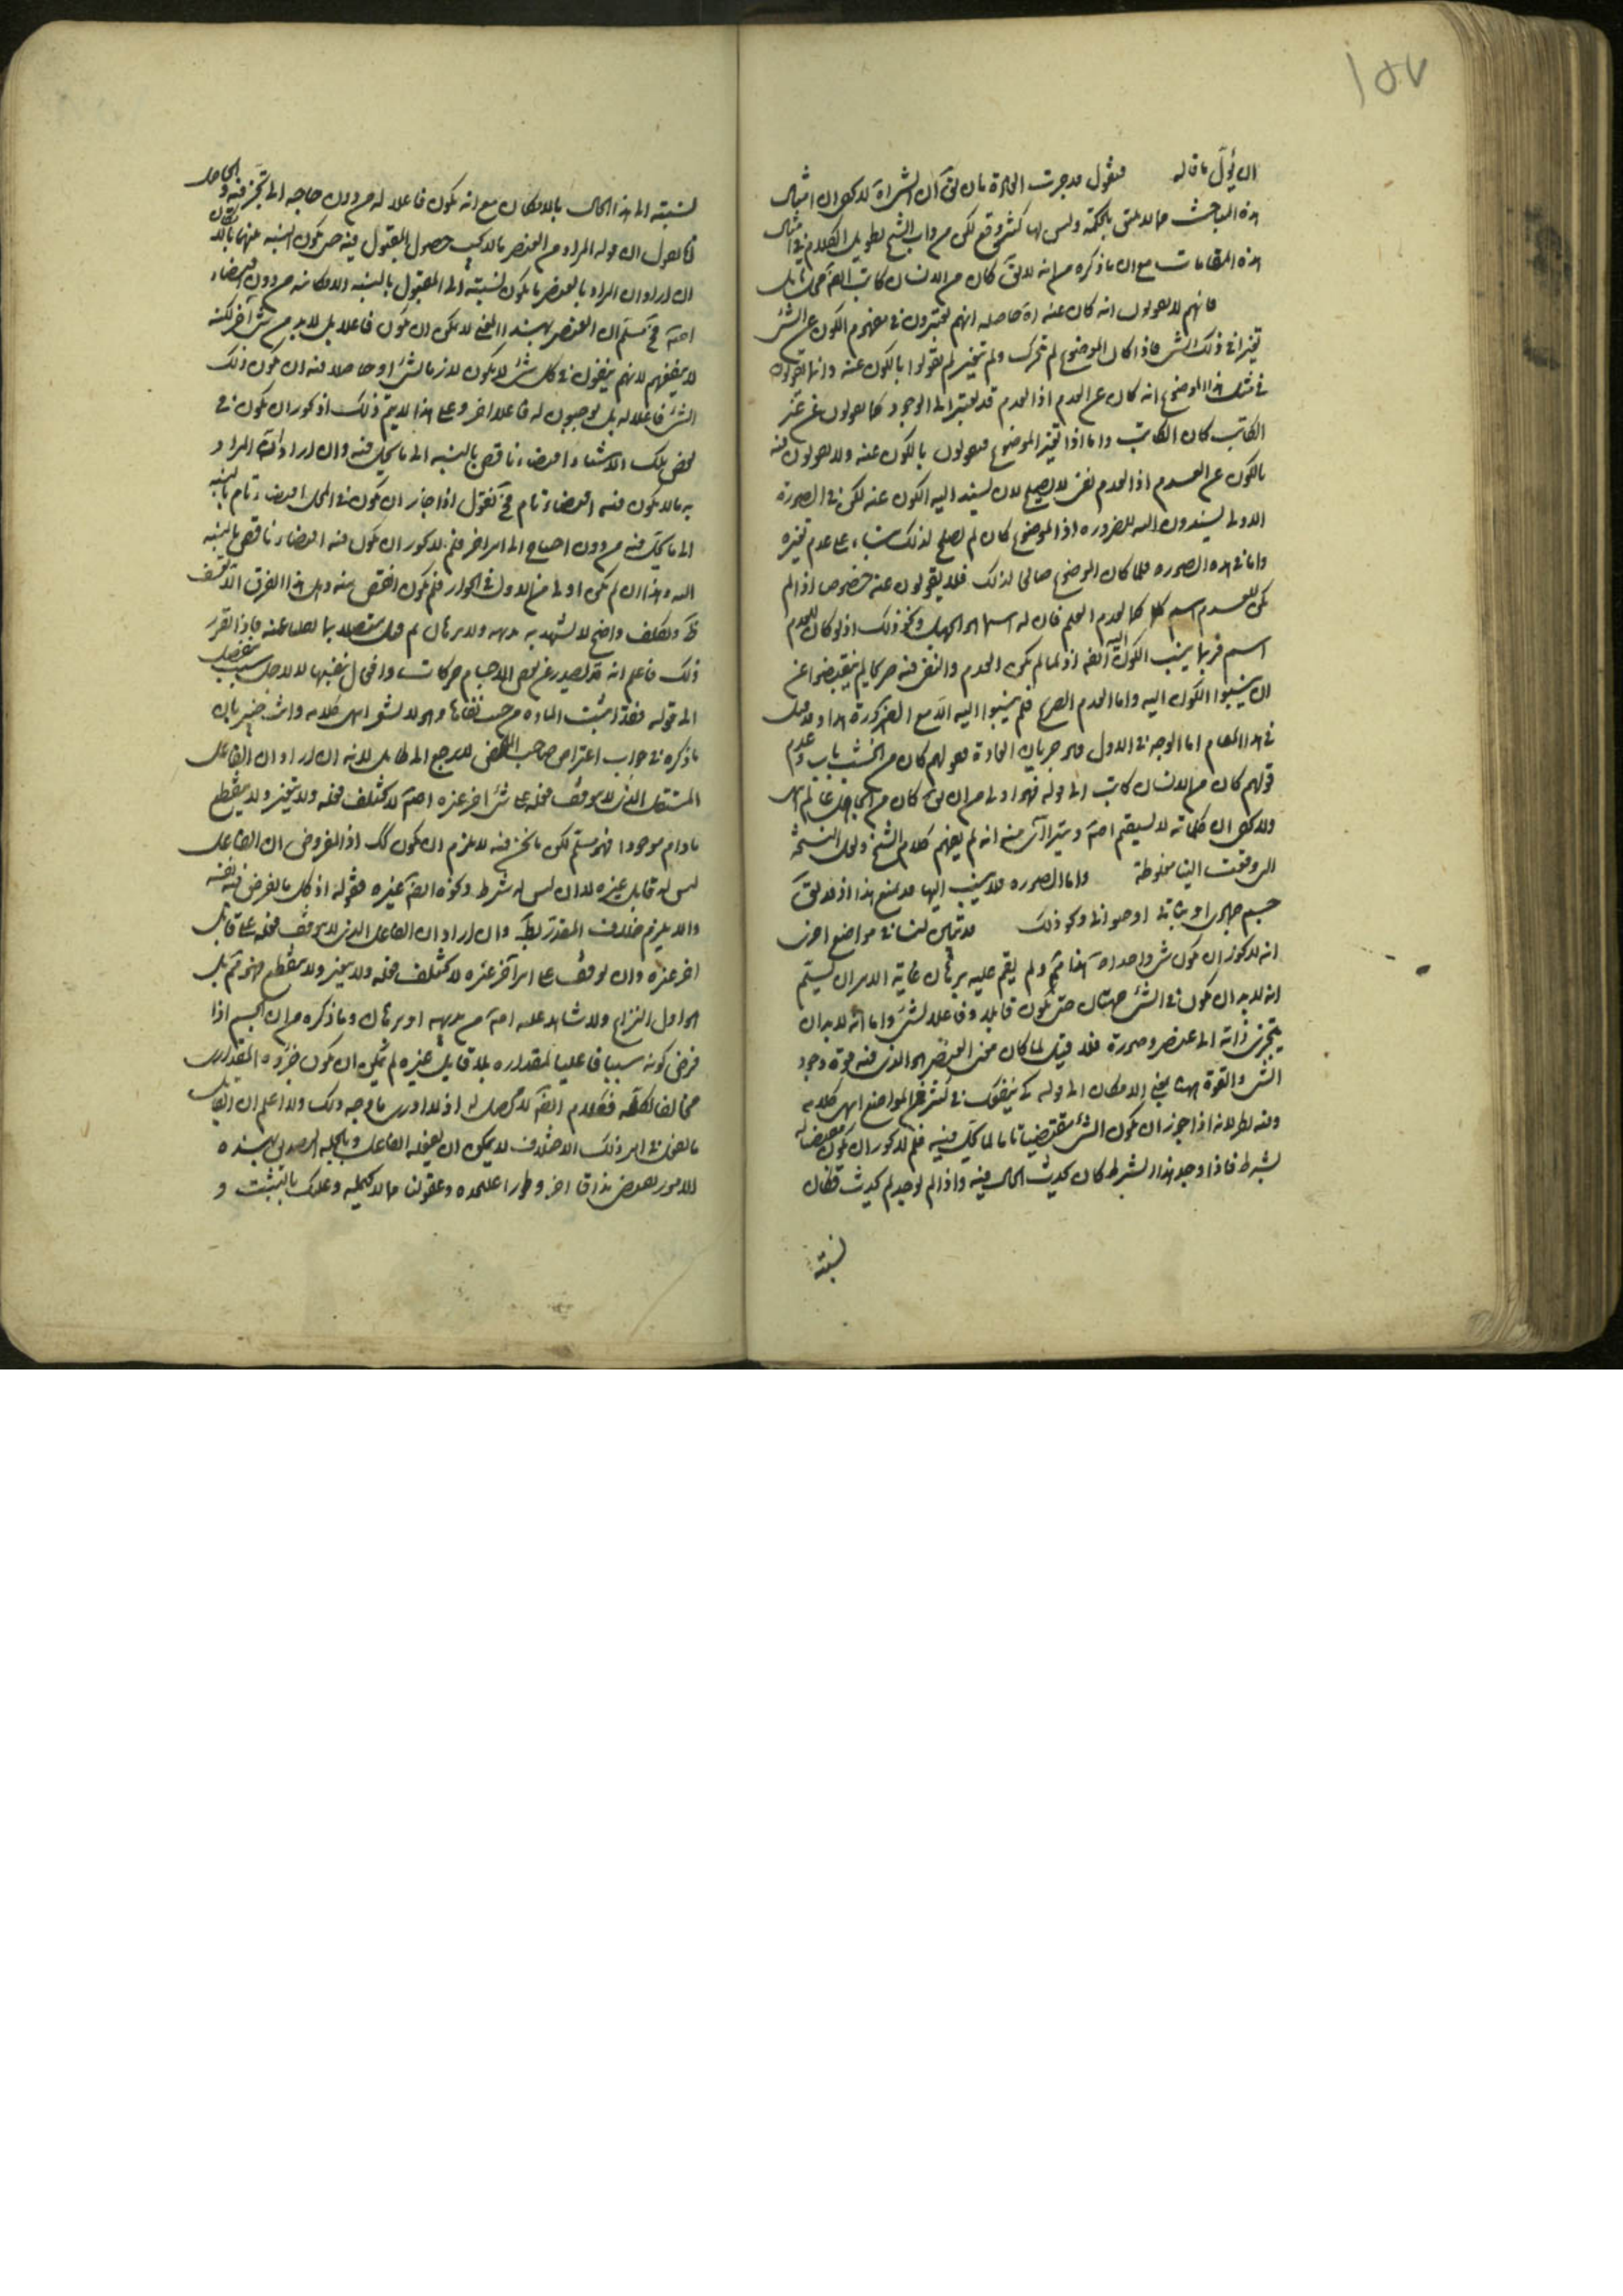 ١٥٧
ان يؤل ما قاله فنقول قد جرت العادة بان يق ان الشراة لا يخفى ان امثال
هذه المباحث مما لا يليق بالحكمة وليس لها كثير وقع لكن من داب الشيخ تطويل الكلام في امثال
هذه المقامات مع ان ما ذكره من انه لا يق كان من الانسان كاتب ايضا محل تامل
فانهم لا يقولون انه كان عنه حاصله انهم يعتبرون في مفهوم الكون عن الشئ
تغيرا في ذلك الشئ فاذا كان الموضوع لم يتحرك ولم يتغير لم يقولوا بالكون عنه وانما يقولون
في مثل هذا الموضوع انه كان عن العدم اذ العدم قد يعتبر الى الوجود كما يقولون عن غير
الكاتب كان الكاتب واما اذا تغير الموضوع فيقولون بالكون عنه ولا يقولون فيه
بالكون عن العدم اذ العدم نفى لا يصلح لان يسند اليه الكون عنه لكن في الصورة
الاولى يسندون اليه للضرورة اذ الموضوع كان لم يصلح لذلك بناء على عدم تغيره
واما في هذه الصورة فلما كان الموضوع صالحا لذلك فلا يقولون عنه خصوصا اذا لم
يكن للعدم اسم كما لعدم العلم فان له اسما هو الجهل ونحو ذلك اذ لو كان للعدم
اسم فربما ينسب الكون اليه ايضا اذ لما لم يكن العدم والنفى فيه صريحا لم ينقبضوا عن
ان ينسبوا الكون اليه واما العدم الصريح فلم ينسبوا اليه الا مع الضرورة هذا وقد قيل
في هذا المقام اما الوجه في الاول فهو جريان العادة بقولهم كان من الخشب باب وعدم
قولهم كان من الانسان كاتب الى قوله فهو اولى من ان يق كان من الجاهل عالم انتهى
ولا يخفى ان كلماته لا يستقيم اصلا ويتراآى منه انه لم يفهم كلام الشيخ ولعل النسخة
التى وقعت الينا مغلوطة واما الصورة فلا ينسب اليها قد يمنع هذا اذ قد يق
جسم حجرى او نباتى او حيوانى ونحو ذلك قد تبين لنا في مواضع اخرى
انه لا يجوز ان يكون شئ واحد لم يقم عليه برهان غاية الامر ان يسلم
انه لا بد ان يكون في الشئ جهتان حتى يكون قابلا وفاعلا لشئ واما انه لا بد ان
يتجزى ذاته الى عنصر وصورة فلا قيل لما كان معنى العنصر هو الذى فيه قوة وجود
الشئ والقوة ههنا بمعنى الامكان الى قوله كى ينفعك في كثير من المواضع انتهى كلامه
وفيه نظر لانه اذا جوز ان يكون الشئ مقتضيا تاما لما يحل فيه فلم لا يجوز ان يكون مقتضيا له
بشرط فاذا وجد هذا الشرط كان يحدث الحال فيه واذا لم يوجد لم يحدث فكان
نسبته
نسبته الى هذا الحال بالامكان مع انه يكون فاعلا له من دون حاجة الى تجز فيه والحاصل
انا نقول ان قوله المراد من العنصر ما لا يجب حصول المقبول فيه حتى يكون النسبة بينهما بالامكان
ان اراد ان المراد بالعنصر ما يكون نسبته الى المقبول بالنسبة الامكانية من دون اقتضاء
اصلا فح نسلم ان العنصر بهذا المعنى لا يمكن ان يكون فاعلا بل لا بد من شئ آخر لكنه
لا ينفعهم لانهم ينفون في كل شئ لا يكون لازما لشئ او حاصلا فيه ان يكون ذلك
الشئ فاعلا له بل يوجبون له فاعلا اخر وعلى هذا لا يتم ذلك اذ يجوز ان يكون في
بعض تلك الاشياء اقتضاء ناقص بالنسبة الى ما يحل فيه وان اراد ان المراد
به ما لا يكون فيه اقتضاء تام فح نقول اذا جاز ان يكون في المحل اقتضاء تام بالنسبة
الى ما يحل فيه من دون احتياج الى امر اخر فلم لا يجوز ان يكون فيه اقتضاء ناقص بالنسبة
اليه وهذا ان لم يكن اولى من الاول في الجواز فلم يكون انقص منه وهل هذا الفرق الا تعسف
ظ وتكلف واضح لا يشهد به بديهة ولا برهان
ذلك فاعلم انه قد يصدر عن بعض الاجسام حركات وافعال بعينها لا لاجل سبب منفصل
الى قوله فقد اثبت المادة من حيث وهو لا يشعر انتهى كلامه وانت خبير بان
ما ذكره في جواب اعتراض صاحب الملخص لا يرجع الى طائل لانه ان اراد ان الفاعل
المستقل الذى لا يتوقف فعله على شئ اخر غيره اصلا لا يختلف فعله ولا يتغير ولا ينقطع
ما دام موجودا فهو مسلم لكن ما نحن فيه لا يلزم ان يكون كك اذ المفروض ان الفاعل
ليس له قابل غيره لا ان ليس له شرط ونحوه ايضا غيره
والا يلزم خلاف المقدر وان اراد ان الفاعل الذى لا يتوقف فعله على قابل
اخر غيره وان توقف على امر آخر غيره لا يختلف فعله ولا يتغير ولا ينقطع فهو مم بل
هو اول النزاع ولا شاهد عليه اصلا من بديهة او برهان وما ذكره من ان الجسم اذا
فرض كونه سببا فاعليا لمقداره بلا قابل غيره لم يمكن ان يكون جزؤه المقدارى
مخالفا لكله فكلام ايضا لا محصل له اذ لا ادرى ما وجه ذلك ولا اعلم ان القابل
ما يفعل في امر ذلك الاختلاف لا يمكن ان يفعله الفاعل وبالجملة التصديق بهذه
الامور يعوض مذاق اخر وطورا عليحده وعقولنا مما لا يحكمه وعليك بالتثبت و